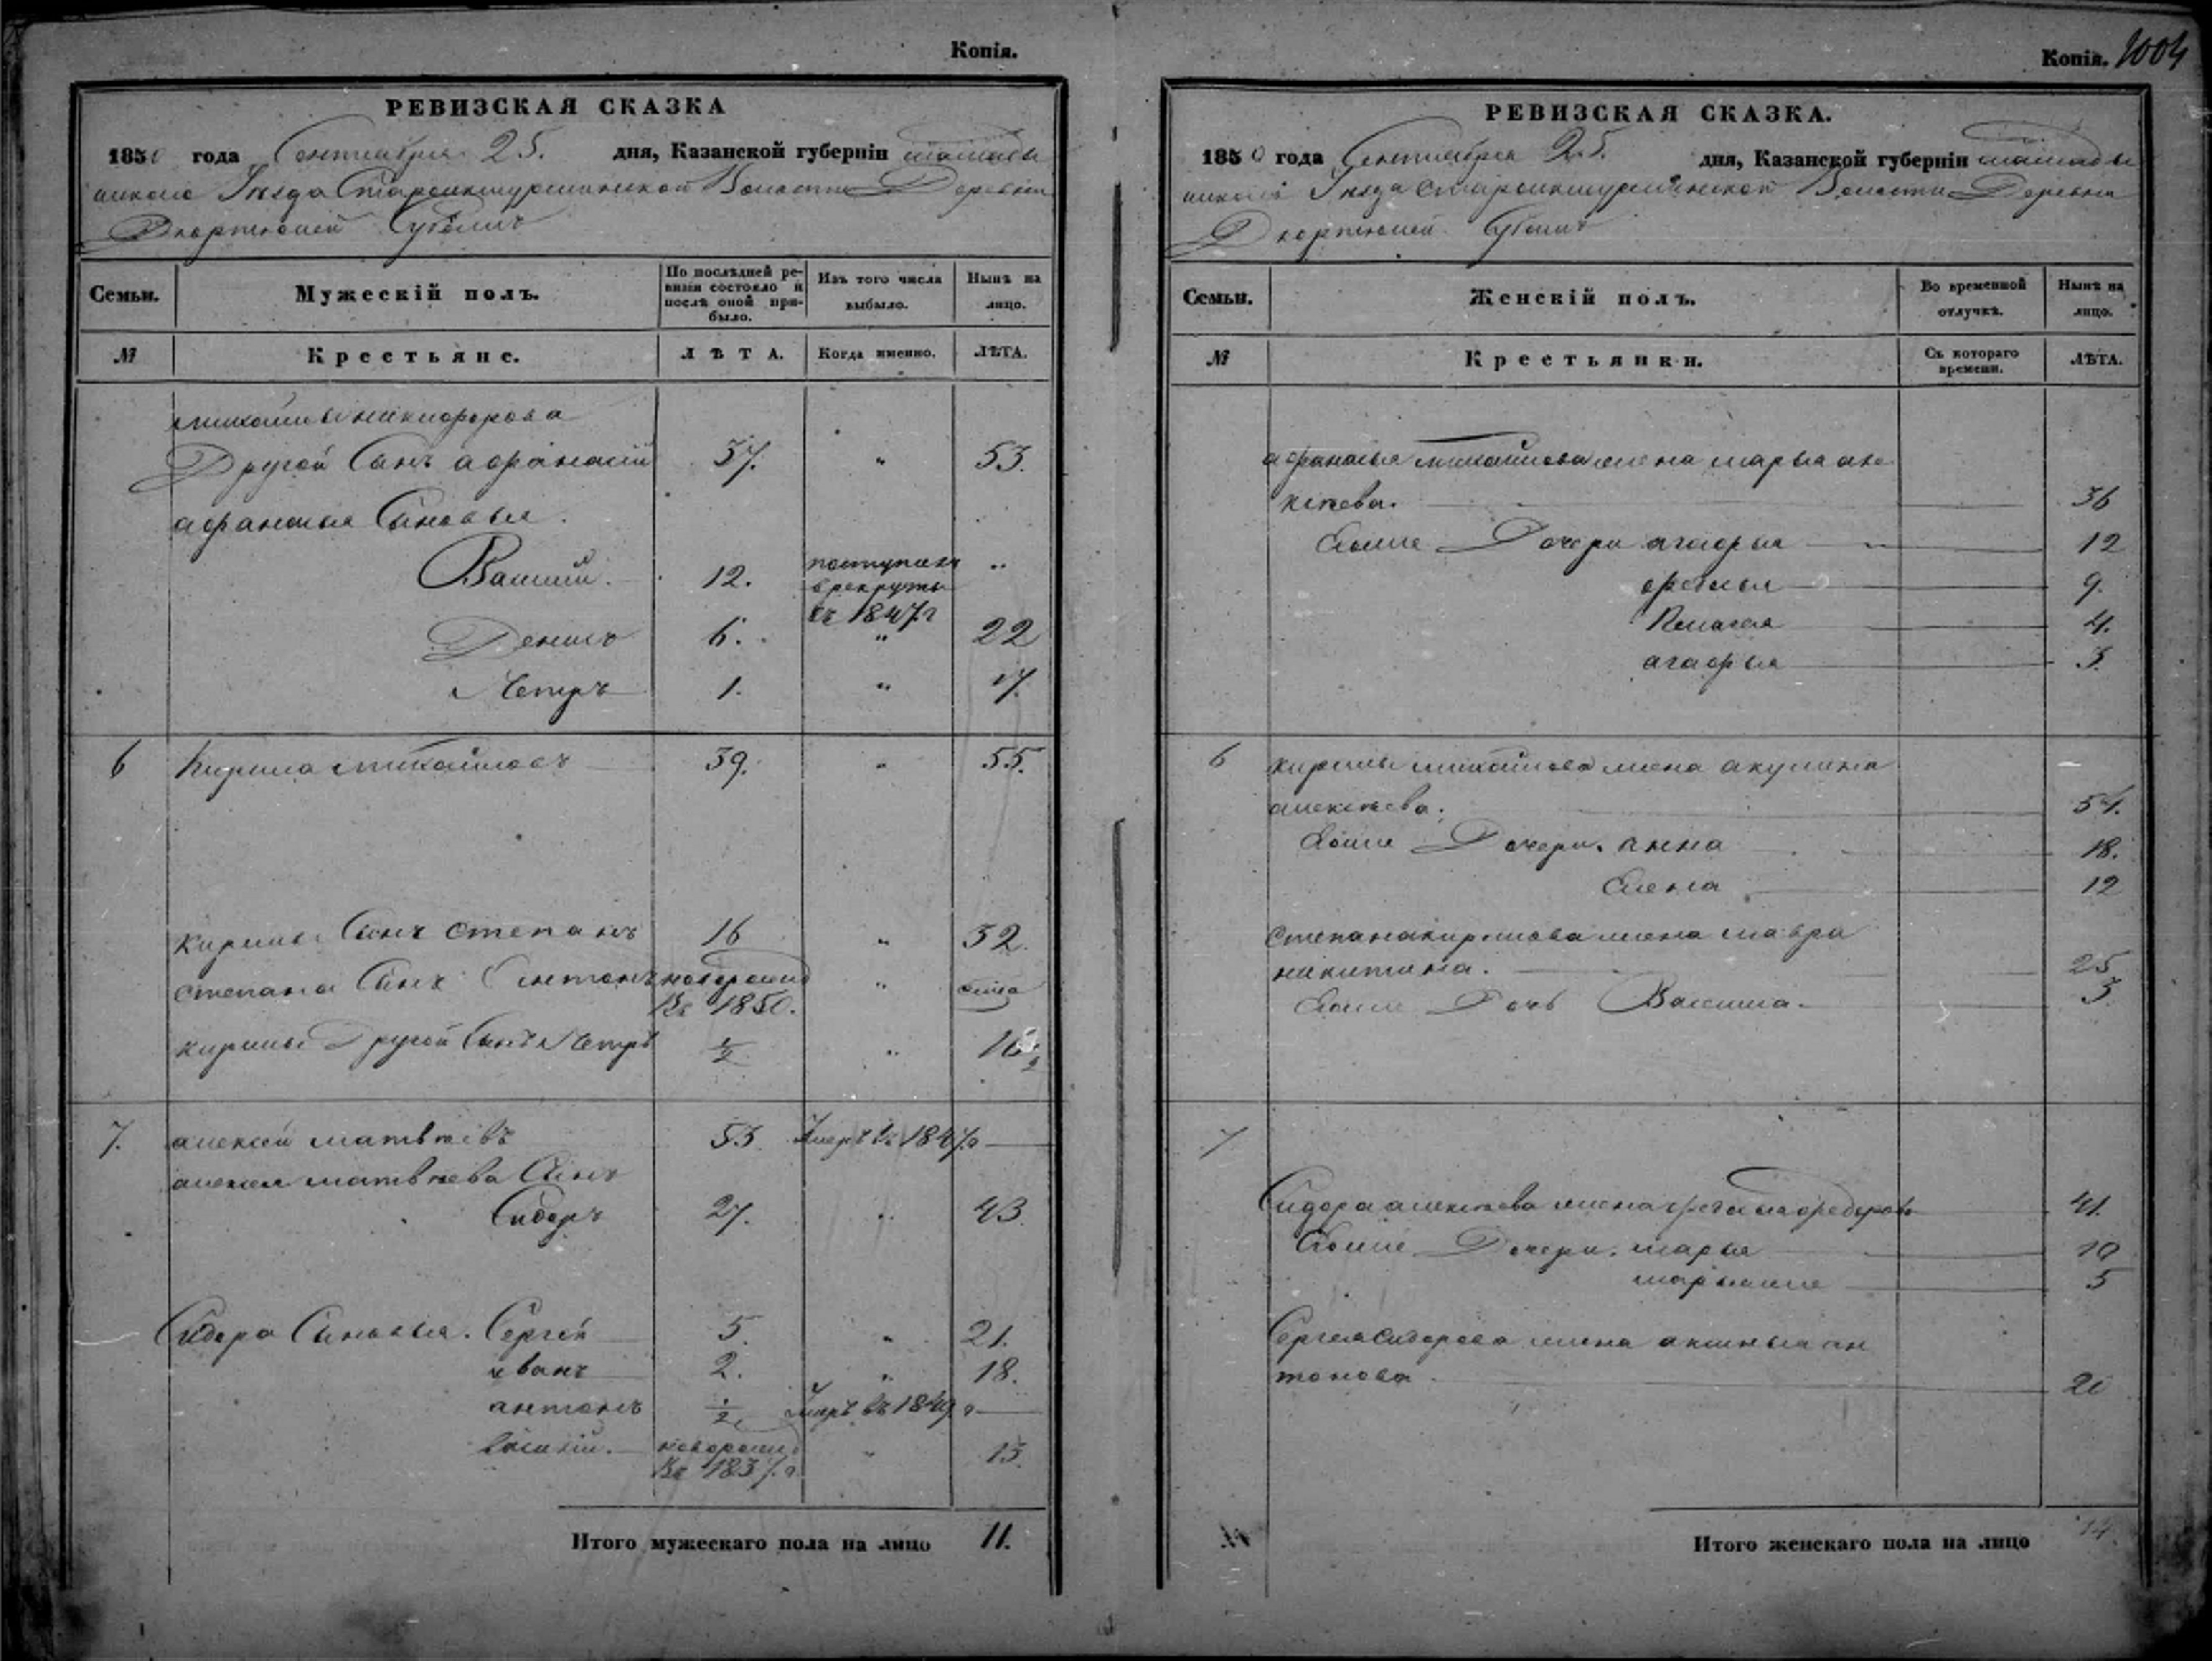 Копія.
РЕВИЗСКАЯ СКАЗКА
1850 года Сентября 25. дня, Казанской губерніи
Уезда Волости Деревни
Семьи. Мужескій полъ. По послѣдней ревизіи состояло и послѣ оной прибыло. Изъ того числа выбыло. Нынѣ на лицо.
№ Крестьяне. ЛѢТА. Когда именно. ЛѢТА.
михайлы никифорова
Другой Сынъ афанасій 37. " 53.
афанасья Сыновья.
Василій. 12. поступилъ в рекруты въ 1847 г "
Денисъ 6. " 22
Петръ 1. " 17.
6 Кирила михайловъ 39. " 55.
кирилы Сынъ степанъ 16 " 32.
степана Сынъ Антонъ новорожд Въ 1850. "
кирилы Другой Сынъ Петръ 1/2 " 16 1/2
7. алексей матвѣевъ 53 Умеръ въ 1847 г —
алексея матвѣева Сынъ
Сидоръ 27. " 43
Сидора Сыновья. Сергей 5. " 21.
иванъ 2. " 18.
антонъ 1/2 Умеръ въ 1849 г —
новорожд Въ 1837 г. " 13.
Итого мужескаго пола на лицо 11.
Копія. 1004
РЕВИЗСКАЯ СКАЗКА.
1850 года Сентября 25. дня, Казанской губерніи
Уезда Волости Деревни
Семьи. Женскій полъ. Во временной отлучкѣ. Нынѣ на лицо.
№ Крестьянки. Съ котораго времени. ЛѢТА.
афанасья михайлова жена марья але
ксѣева. 36
Дочери агафья 12
9.
Пелагея 4.
агафья 3.
6 кирилы михайлова жена акулина
алексѣева. 54.
Дочери. Анна 18.
Елена 12
степана кирилова жена мавра
никитина. 25
Дочь 3
7
Сидора алексѣева жена федорова 41.
Дочери. марья 10
5
Сергея Сидорова жена аксинья ан
тонова 20
Итого женскаго пола на лицо 14.